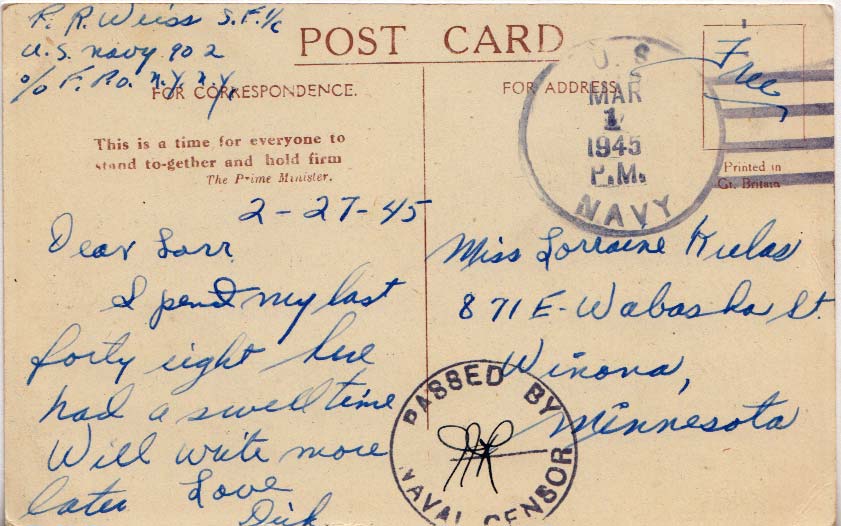 R. R. Weiss S.F. 1/c
U.S. Navy 902
c/o F.P.O. N.Y. N.Y.
POST CARD
FOR CORRESPONDENCE.
FOR ADDRESS
Free
U. S.
MAR
1
1945
P.M.
NAVY
Printed in
Gt. Britain
This is a time for everyone to
stand to-gether and hold firm
The Prime Minister.
2-27-45
Dear Lorr
I spend my last
forty eight here
had a swell time
Will write more
later Love
Dick
Miss Lorraine Kulas
871 E-Wabasha St.
Winona,
Minnesota
PASSED BY
NAVAL CENSOR